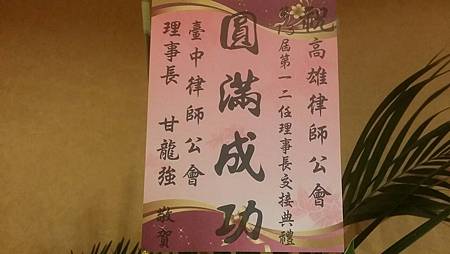 祝高雄律師公會
屆第一二任理事長交接典禮
圓滿成功
臺中律師公會
理事長 甘龍強 敬賀